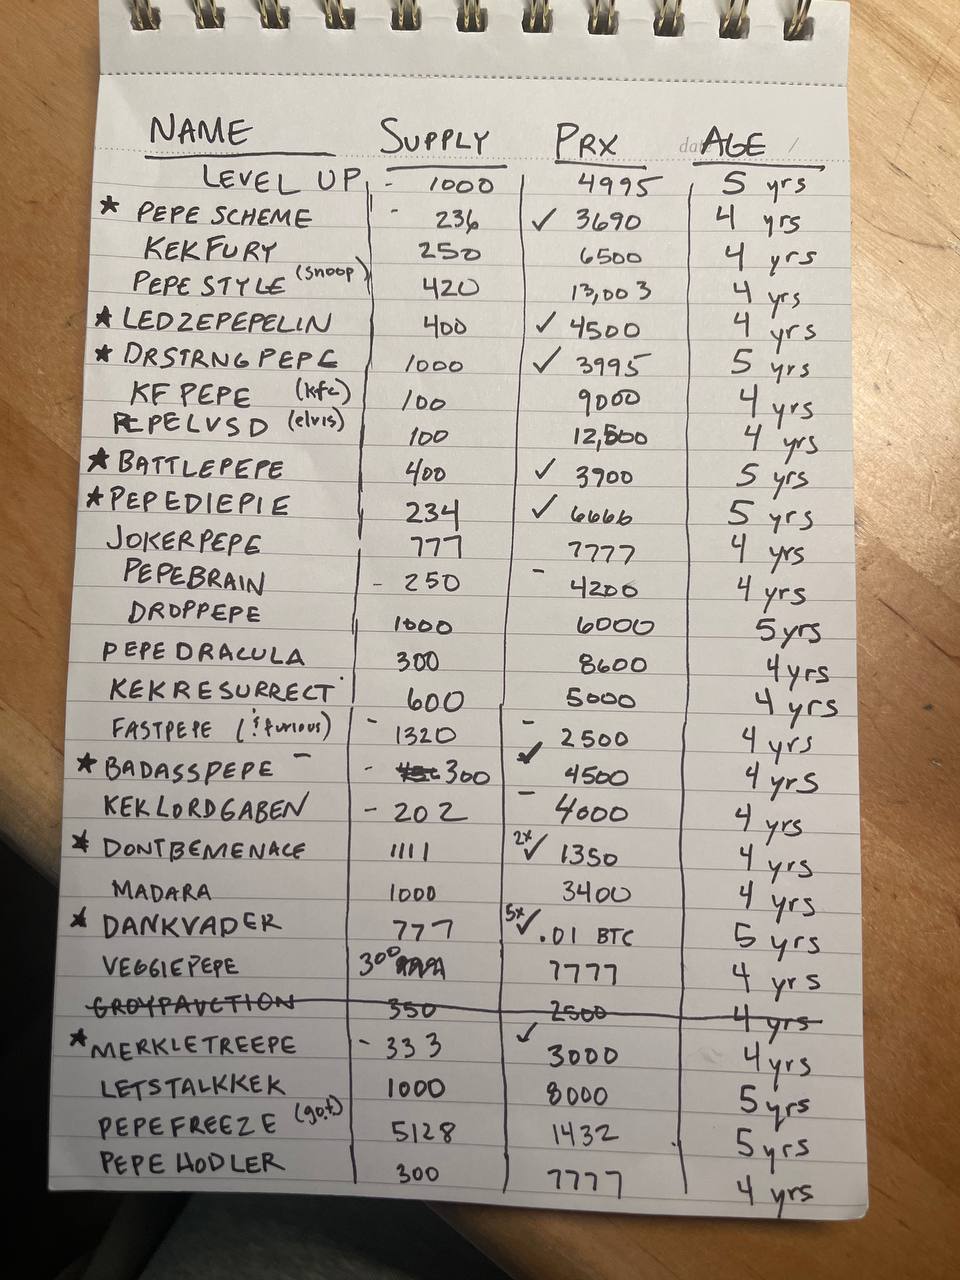 date /
NAME SUPPLY PRX AGE
LEVEL UP - 1000 4995 5 yrs
★ PEPE SCHEME - 236 ✓ 3690 4 yrs
KEKFURY 250 6500 4 yrs
PEPE STYLE (snoop) 420 13,003 4 yrs
★ LEDZEPEPELIN 400 ✓ 4500 4 yrs
★ DRSTRNGPEPE 1000 ✓ 3995 5 yrs
KFPEPE (kfc) 100 9000 4 yrs
PEPELVSD (elvis) 100 12,500 4 yrs
★ BATTLEPEPE 400 ✓ 3900 5 yrs
★ PEPEDIEPIE 234 ✓ 6666 5 yrs
JOKERPEPE 777 7777 4 yrs
PEPEBRAIN - 250 - 4200 4 yrs
DROPPEPE 1000 6000 5 yrs
PEPEDRACULA 300 8600 4 yrs
KEKRESURRECT 600 5000 4 yrs
FASTPEPE (! furious) - 1320 - 2500 4 yrs
★ BADASSPEPE - - 300 ✓ 4500 4 yrs
KEKLORDGABEN - 202 - 4000 4 yrs
★ DONTBEMENACE 1111 2x ✓ 1350 4 yrs
MADARA 1000 3400 4 yrs
★ DANKVADER 777 5x ✓ .01 BTC 5 yrs
VEGGIEPEPE 300 7777 4 yrs
GROYPAUCTION 350 2500 4 yrs
★ MERKLETREEPE - 333 ✓ 3000 4 yrs
LETSTALKKEK 1000 8000 5 yrs
PEPEFREEZE (go.t) 5128 1432 5 yrs
PEPEHODLER 300 7777 4 yrs